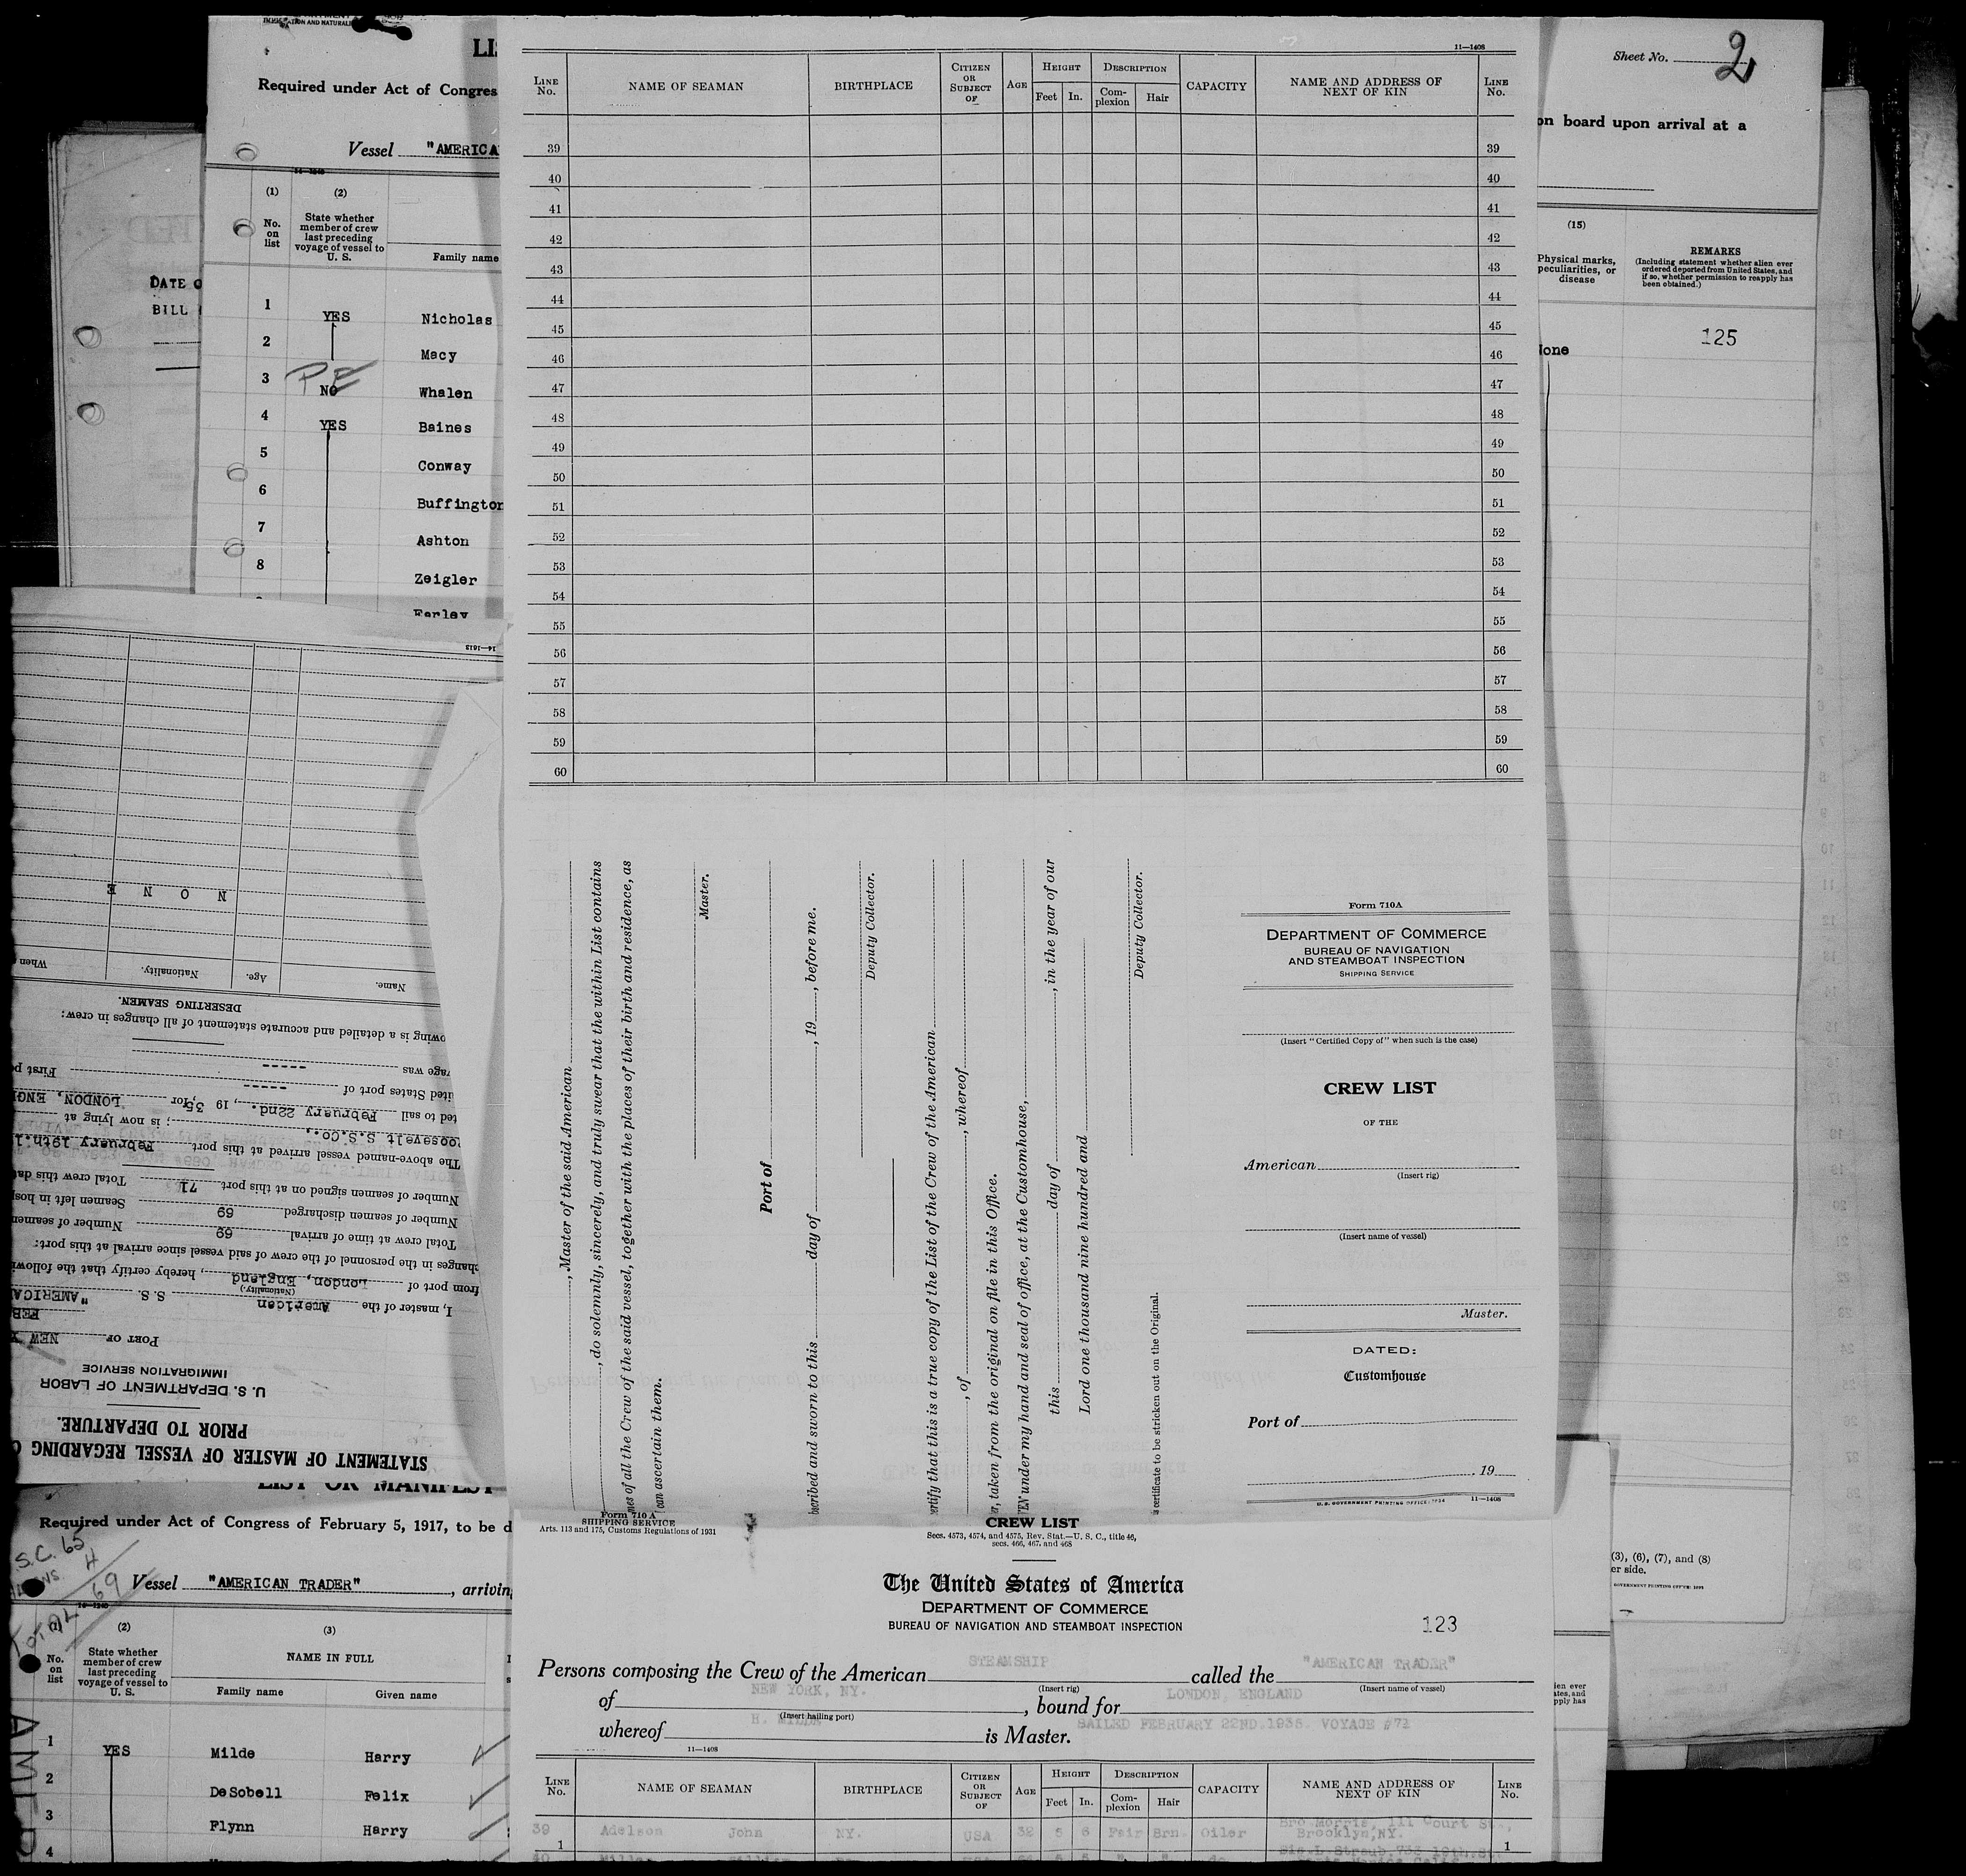 11—1408
LINE No. NAME OF SEAMAN BIRTHPLACE CITIZEN OR SUBJECT OF AGE HEIGHT Feet In. DESCRIPTION Complexion Hair CAPACITY NAME AND ADDRESS OF NEXT OF KIN LINE No.
39 39
40 40
41 41
42 42
43 43
44 44
45 45
46 46
47 47
48 48
49 49
50 50
51 51
52 52
53 53
54 54
55 55
56 56
57 57
58 58
59 59
60 60
, Master of the said American
, do solemnly, sincerely, and truly swear that the within List contains
of all the Crew of the said vessel, together with the places of their birth and residence, as
can ascertain them.
Master.
Port of
and sworn to this day of , 19 , before me.
Deputy Collector.
that this is a true copy of the List of the Crew of the American
, of , whereof
, taken from the original on file in this Office.
under my hand and seal of office, at the Customhouse,
this day of , in the year of our
Lord one thousand nine hundred and
Deputy Collector.
certificate to be stricken out on the Original.
Form 710A
DEPARTMENT OF COMMERCE
BUREAU OF NAVIGATION
AND STEAMBOAT INSPECTION
SHIPPING SERVICE
(Insert "Certified Copy of" when such is the case)
CREW LIST
OF THE
American
(Insert rig)
(Insert name of vessel)
Master.
DATED:
Customhouse
Port of
, 19
U.S. GOVERNMENT PRINTING OFFICE: 1934 11—1408
Form 710 A
SHIPPING SERVICE
Arts. 113 and 175, Customs Regulations of 1931
CREW LIST
Secs. 4573, 4574, and 4575, Rev. Stat.—U. S. C., title 46,
secs. 466, 467, and 468
The United States of America
DEPARTMENT OF COMMERCE
BUREAU OF NAVIGATION AND STEAMBOAT INSPECTION
123
Persons composing the Crew of the American STEAMSHIP called the "AMERICAN TRADER"
(Insert rig) (Insert name of vessel)
of NEW YORK, NY. , bound for LONDON, ENGLAND
(Insert hailing port)
whereof H. MILDE is Master. SAILED FEBRUARY 22ND.1935. VOYAGE #71
11—1408
LINE No. NAME OF SEAMAN BIRTHPLACE CITIZEN OR SUBJECT OF AGE HEIGHT Feet In. DESCRIPTION Complexion Hair CAPACITY NAME AND ADDRESS OF NEXT OF KIN LINE No.
39 Adelson John NY. USA 32 5 6 Fair Brn. Oiler Bro Morris, 111 Court St.,
Brooklyn,NY.
1 1
40
Required under Act of Congres
Vessel "AMERICA
(1) (2)
No. on list State whether member of crew last preceding voyage of vessel to U. S. Family name
1 YES Nicholas
2 Macy
3 PE NO Whalen
4 YES Baines
5 Conway
6 Buffington
7 Ashton
8 Zeigler
Farley
DATE O
BILL
Sheet No. 2
on board upon arrival at a
(15)
Physical marks, peculiarities, or disease
REMARKS
(Including statement whether alien ever ordered deported from United States, and if so, whether permission to reapply has been obtained.)
125
None
(3), (6), (7), and (8)
er side.
STATEMENT OF MASTER OF VESSEL REGARDING
PRIOR TO DEPARTURE.
U. S. DEPARTMENT OF LABOR
IMMIGRATION SERVICE
PORT OF NEW Y
FEB
I, master of the American S. S. "AMERICA
(Nationality.)
from port of London, England , hereby certify that the followi
changes in the personnel of the crew of said vessel since arrival at this port:
Total crew at time of arrival 69 Number of seamen
Number of seamen discharged 69 Seamen left in hos
Number of seamen signed on at this port 71 Total crew this da
The above-named vessel arrived at this port February 19th.1
oosevelt S.S.Co., ; is now lying at
ted to sail February 22nd. , 19 35, for LONDON, ENG
ited States port of ----- First p
age was -----
owing is a detailed and accurate statement of all changes in crew:
DESERTING SEAMEN.
Name. Age. Nationality. When
N O N E
14—1613
LIST OR MANIFEST
Required under Act of Congress of February 5, 1917, to be d
S.C. 65
4
69
Vessel "AMERICAN TRADER" , arriving
(2) (3)
No. on list State whether member of crew last preceding voyage of vessel to U. S. NAME IN FULL
Family name Given name
1 YES Milde Harry
2 DeSobell Felix
3 Flynn Harry
4